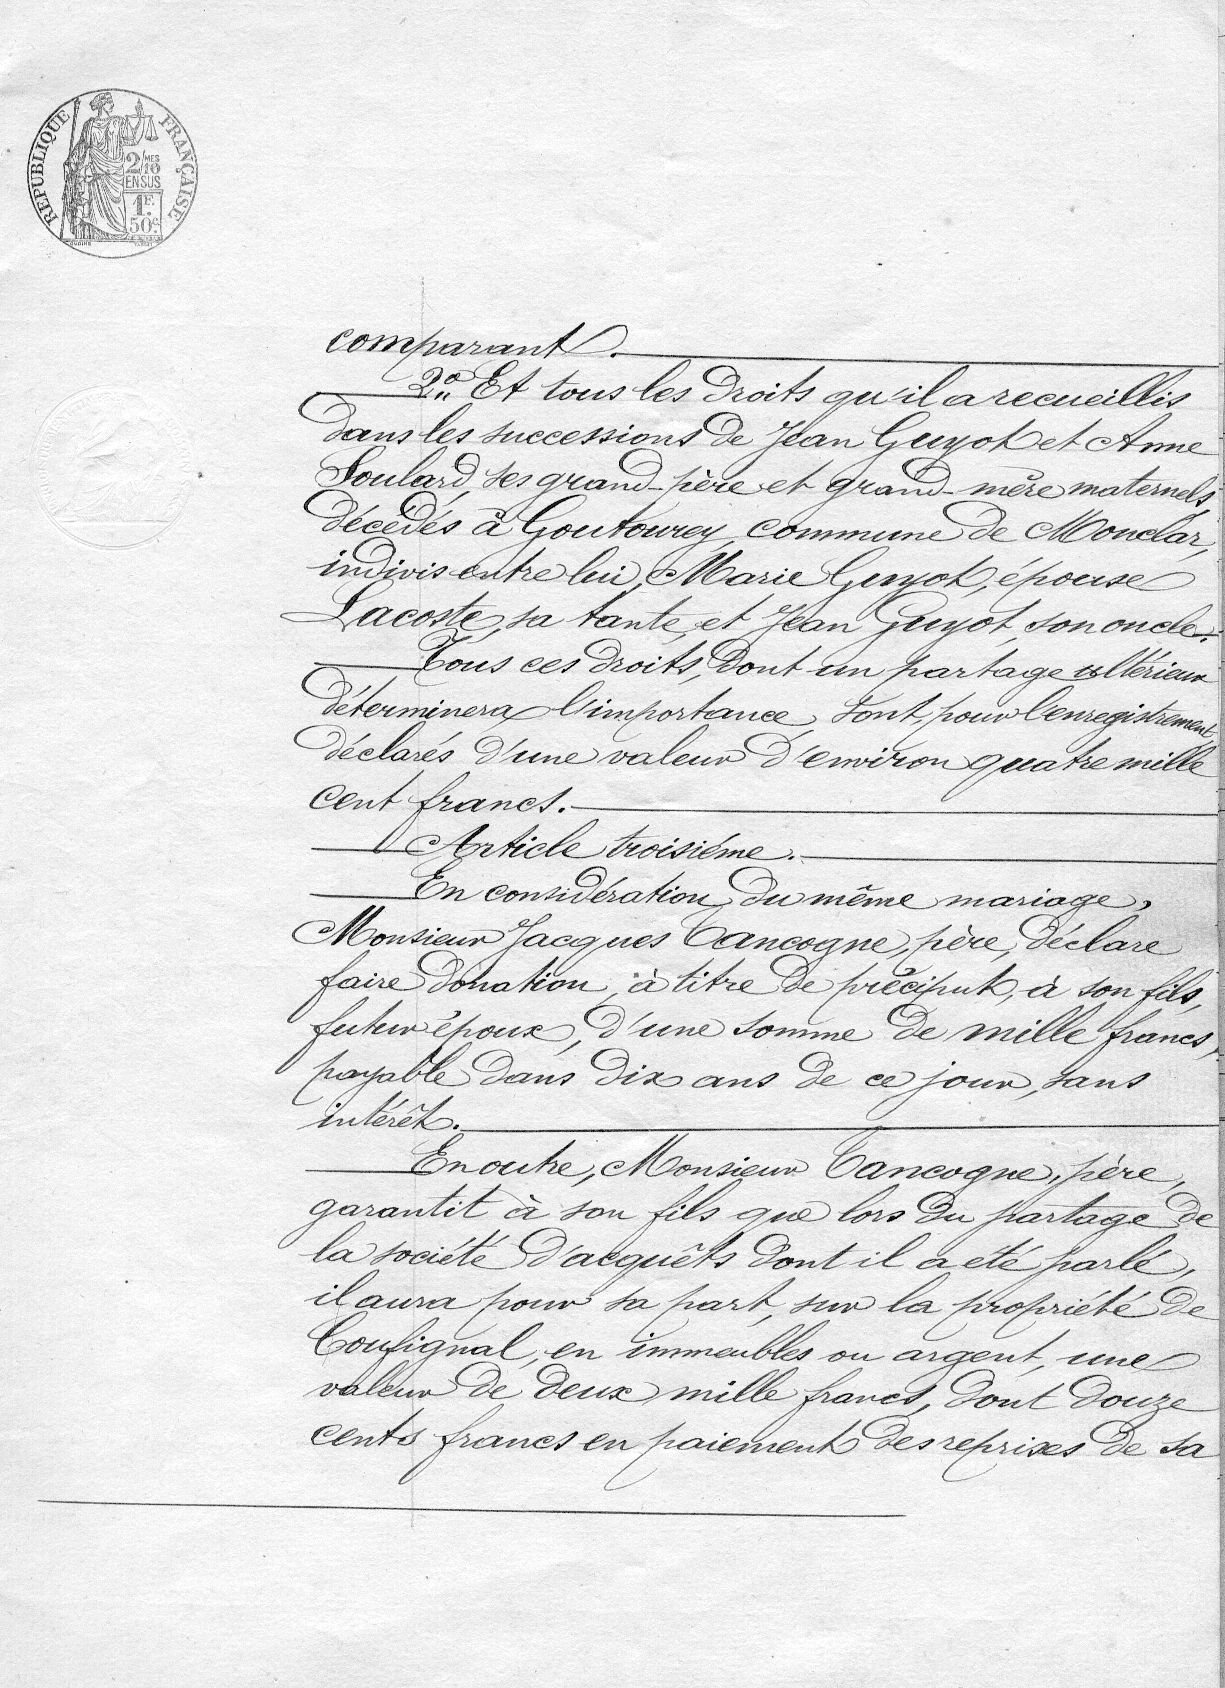 RÉPUBLIQUE FRANÇAISE
2/MES 10
EN SUS
1F.
50c.
comparant.
2° Et tous les droits qu'il a recueillis
dans les successions de Jean Guyot et Anne
Soulard, ses grand-père et grand-mère maternels,
décédés à Goutourey, commune de Monclar,
indivis entre lui, Marie Guyot, épouse
Lacoste, sa tante, et Jean Guyot, son oncle.
Tous ces droits, dont un partage ultérieur
déterminera l'importance, sont, pour l'enregistrement,
déclarés d'une valeur d'environ quatre mille
cent francs.
Article troisième.
En considération du même mariage,
Monsieur Jacques Tancogne, père, déclare
faire donation, à titre de préciput, à son fils,
futur époux, d'une somme de mille francs
payable dans dix ans de ce jour, sans
intérêt.
En outre, Monsieur Tancogne, père,
garantit à son fils que lors du partage de
la société d'acquêts dont il a été parlé,
il aura pour sa part, sur la propriété de
Coufignal, en immeubles ou argent, une
valeur de deux mille francs, dont douze
cents francs en paiement des reprises de sa